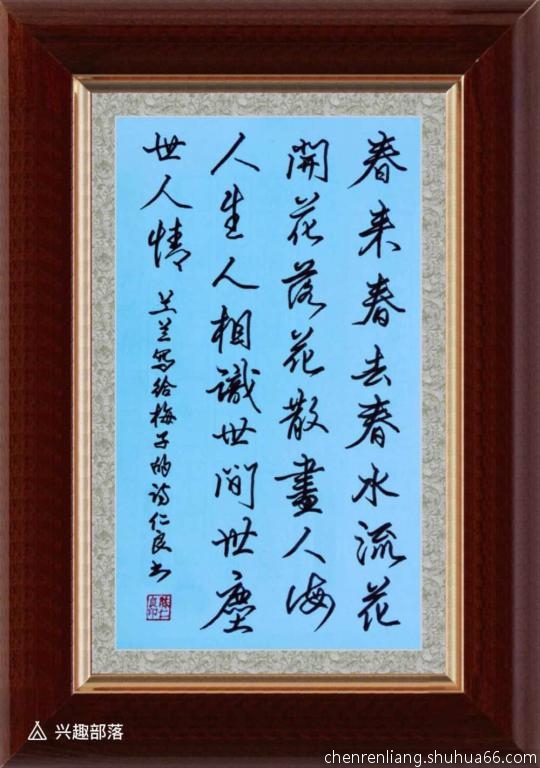 春来春去春水流花
開花落花散盡人海
人生人相識世間世塵
世人情 兰兰写给梅子的诗仁良书
陳仁良印
兴趣部落
chenrenliang.shuhua66.com